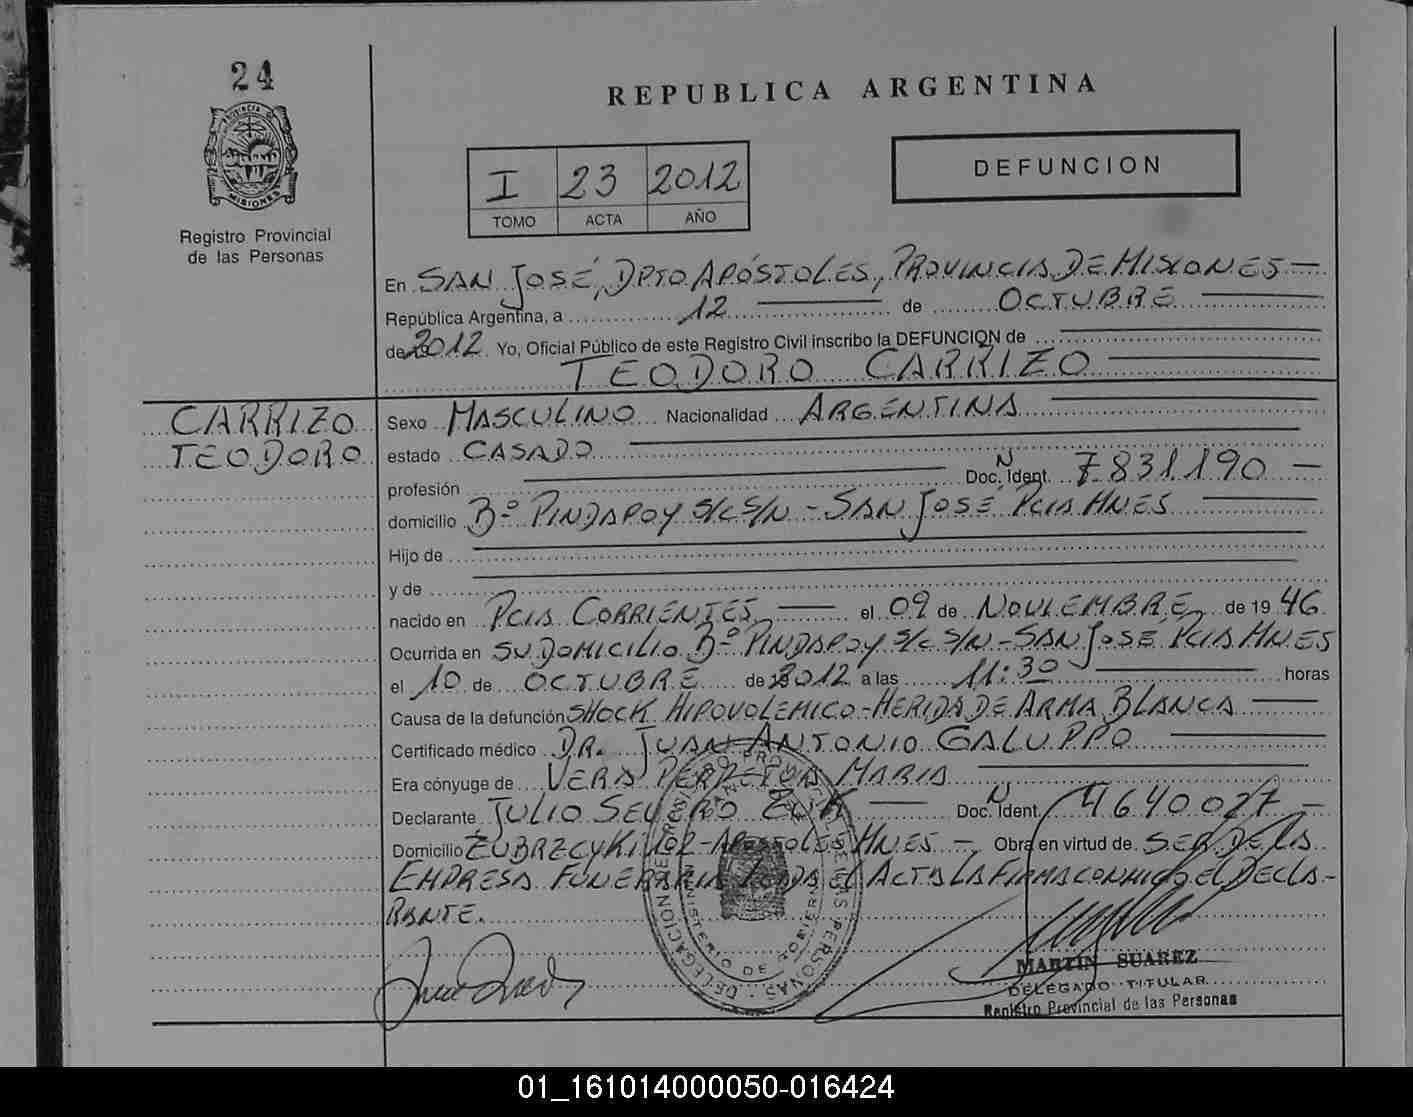 24
PROVINCIA DE
MISIONES
Registro Provincial
de las Personas
REPUBLICA ARGENTINA
I 23 2012
TOMO ACTA AÑO
DEFUNCION
En SAN JOSÉ, DPTO APÓSTOLES, PROVINCIA DE MISIONES —
República Argentina, a 12 — de OCTUBRE —
de 2012. Yo, Oficial Público de este Registro Civil inscribo la DEFUNCION de —
TEODORO CARRIZO —
CARRIZO
TEODORO
Sexo MASCULINO Nacionalidad ARGENTINA —
estado CASADO —
profesión — Doc. N Ident. 7831190 —
domicilio Bº PINDAPOY S/C S/N - SAN JOSÉ PCIA MNES —
Hijo de —
y de —
nacido en PCIA CORRIENTES — el 09 de NOVIEMBRE de 1946
Ocurrida en SU DOMICILIO Bº PINDAPOY S/C S/N - SAN JOSE PCIA MNES
el 10 de OCTUBRE de 2012 a las 11:30 — horas
Causa de la defunción SHOCK HIPOVOLEMICO - HERIDA DE ARMA BLANCA —
Certificado médico DR. JUAN ANTONIO GALUPPO —
Era cónyuge de VERA MARIA —
Declarante JULIO SEVERO — Doc. N Ident. 4640027 —
Domicilio - APOSTOLES MNES — Obra en virtud de SER DE LA
EMPRESA FUNERARIA EL ACTA LA FIRMA CONMIGO EL DECLA-
RANTE.
DELEGACION PROVINCIAL DE LAS PERSONAS
MINISTERIO DE GOBIERNO
MARTIN SUAREZ
DELEGADO TITULAR
Registro Provincial de las Personas
01_161014000050-016424